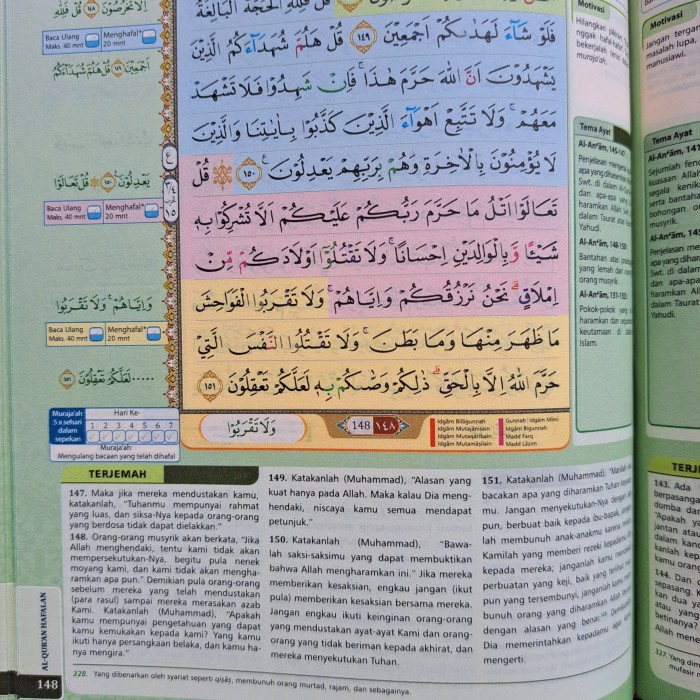 اَلَّا تَخْرُصُوْنَ ١٤٨ قُلْ فَلِلّٰهِ
Baca Ulang Maks. 40 mnt
Menghafal* 20 mnt
اَجْمَعِيْنَ ١٤٩ قُلْ هَلُمَّ شُهَدَاۤءَكُمُ
يَعْدِلُوْنَ ١٥٠ ۞ قُلْ تَعَالَوْا
Baca Ulang Maks. 40 mnt
Menghafal* 20 mnt
وَاِيَّاهُمْ ۚ وَلَا تَقْرَبُوا
Baca Ulang Maks. 40 mnt
Menghafal* 20 mnt
..... لَعَلَّكُمْ تَعْقِلُوْنَ ١٥١
Muraja'ah 5 x sehari dalam sepekan
Hari Ke-
1 2 3 4 5 6 7
Muraja'ah:
Mengulang bacaan yang telah dihafal
قُلْ فَلِلّٰهِ الْحُجَّةُ الْبَالِغَةُ
فَلَوْ شَاۤءَ لَهَدٰىكُمْ اَجْمَعِيْنَ ١٤٩ قُلْ هَلُمَّ شُهَدَاۤءَكُمُ الَّذِيْنَ
يَشْهَدُوْنَ اَنَّ اللّٰهَ حَرَّمَ هٰذَا ۚ فَاِنْ شَهِدُوْا فَلَا تَشْهَدْ
مَعَهُمْ ۚ وَلَا تَتَّبِعْ اَهْوَاۤءَ الَّذِيْنَ كَذَّبُوْا بِاٰيٰتِنَا وَالَّذِيْنَ
لَا يُؤْمِنُوْنَ بِالْاٰخِرَةِ وَهُمْ بِرَبِّهِمْ يَعْدِلُوْنَ ١٥٠ ۞ قُلْ
تَعَالَوْا اَتْلُ مَا حَرَّمَ رَبُّكُمْ عَلَيْكُمْ اَلَّا تُشْرِكُوْا بِهٖ
شَيْـًٔا وَّبِالْوَالِدَيْنِ اِحْسَانًا ۚ وَلَا تَقْتُلُوْٓا اَوْلَادَكُمْ مِّنْ
اِمْلَاقٍ ۗ نَحْنُ نَرْزُقُكُمْ وَاِيَّاهُمْ ۚ وَلَا تَقْرَبُوا الْفَوَاحِشَ
مَا ظَهَرَ مِنْهَا وَمَا بَطَنَ ۚ وَلَا تَقْتُلُوا النَّفْسَ الَّتِيْ
حَرَّمَ اللّٰهُ اِلَّا بِالْحَقِّ ۗ ذٰلِكُمْ وَصّٰىكُمْ بِهٖ لَعَلَّكُمْ تَعْقِلُوْنَ ١٥١
وَلَا تَقْرَبُوْا
148 ١٤٨
Idgām Bilāgunnah
Idgām Mutajānisain
Idgām Mutaqāribain
Idgām Mutamāṡilain
Gunnah | Idgām Mīmī
Idgām Bigunnah
Madd Farq
Madd Lāzim
Motivasi
Hilangkan
nggak
bekerjalah
muraja'ah.
Tema Ayat
Al-An'ām, 145-147:
Penjelasan mengenai
apa yang diharamkan
Swt. di dalam
dan apa-apa yang
haramkan Allah
dalam Taurat
Yahudi.
Al-An'ām, 148-150:
Bantahan atas
yang lemah dari
orang musyrik.
Al-An'ām, 151-153:
Pokok-pokok
haramkan dan
keutamaan di
Islam.
TERJEMAH
147. Maka jika mereka mendustakan kamu,
katakanlah, "Tuhanmu mempunyai rahmat
yang luas, dan siksa-Nya kepada orang-orang
yang berdosa tidak dapat dielakkan."
148. Orang-orang musyrik akan berkata, "Jika
Allah menghendaki, tentu kami tidak akan
mempersekutukan-Nya, begitu pula nenek
moyang kami, dan kami tidak akan mengha-
ramkan apa pun." Demikian pula orang-orang
sebelum mereka yang telah mendustakan
(para rasul) sampai mereka merasakan azab
Kami. Katakanlah (Muhammad), "Apakah
kamu mempunyai pengetahuan yang dapat
kamu kemukakan kepada kami? Yang kamu
ikuti hanya persangkaan belaka, dan kamu ha-
nya mengira."
149. Katakanlah (Muhammad), "Alasan yang
kuat hanya pada Allah. Maka kalau Dia meng-
hendaki, niscaya kamu semua mendapat
petunjuk."
150. Katakanlah (Muhammad), "Bawa-
lah saksi-saksimu yang dapat membuktikan
bahwa Allah mengharamkan ini." Jika mereka
memberikan kesaksian, engkau jangan (ikut
pula) memberikan kesaksian bersama mereka.
Jangan engkau ikuti keinginan orang-orang
yang mendustakan ayat-ayat Kami dan orang-
orang yang tidak beriman kepada akhirat, dan
mereka menyekutukan Tuhan.
151. Katakanlah (Muhammad), "Marilah
bacakan apa yang diharamkan Tuhan
mu. Jangan menyekutukan-Nya dengan
pun, berbuat baik kepada ibu-bapak,
lah membunuh anak-anakmu karena
Kamilah yang memberi rezeki kepadamu
kepada mereka; janganlah kamu
perbuatan yang keji, baik yang terlihat
pun yang tersembunyi, janganlah kamu
bunuh orang yang diharamkan Allah
dengan alasan yang benar. Demikian
Dia memerintahkan kepadamu agar
mengerti.
328. Yang dibenarkan oleh syariat seperti qiṣāṣ, membunuh orang murtad, rajam, dan sebagainya.
AL-QUR'AN HAFALAN
148
Motivasi
Jangan
masalah lupa,
manusiawi.
Tema Ayat
Al-An'ām, 141
Sejumlah
kuasaan Allah
segala
serta bantahan
bohongan
musyrik.
Al-An'ām, 145
Penjelasan
apa yang
Swt. di dalam
dan apa-apa
haramkan Allah
dalam Taurat
Yahudi.
143. Ada
berpasangan
domba dan
"Apakah
jantan atau
dalam
katakanlah
kamu orang
144. Dan
sepasang.
kan dua
atau yang
betinanya?
Allah
327. Yang